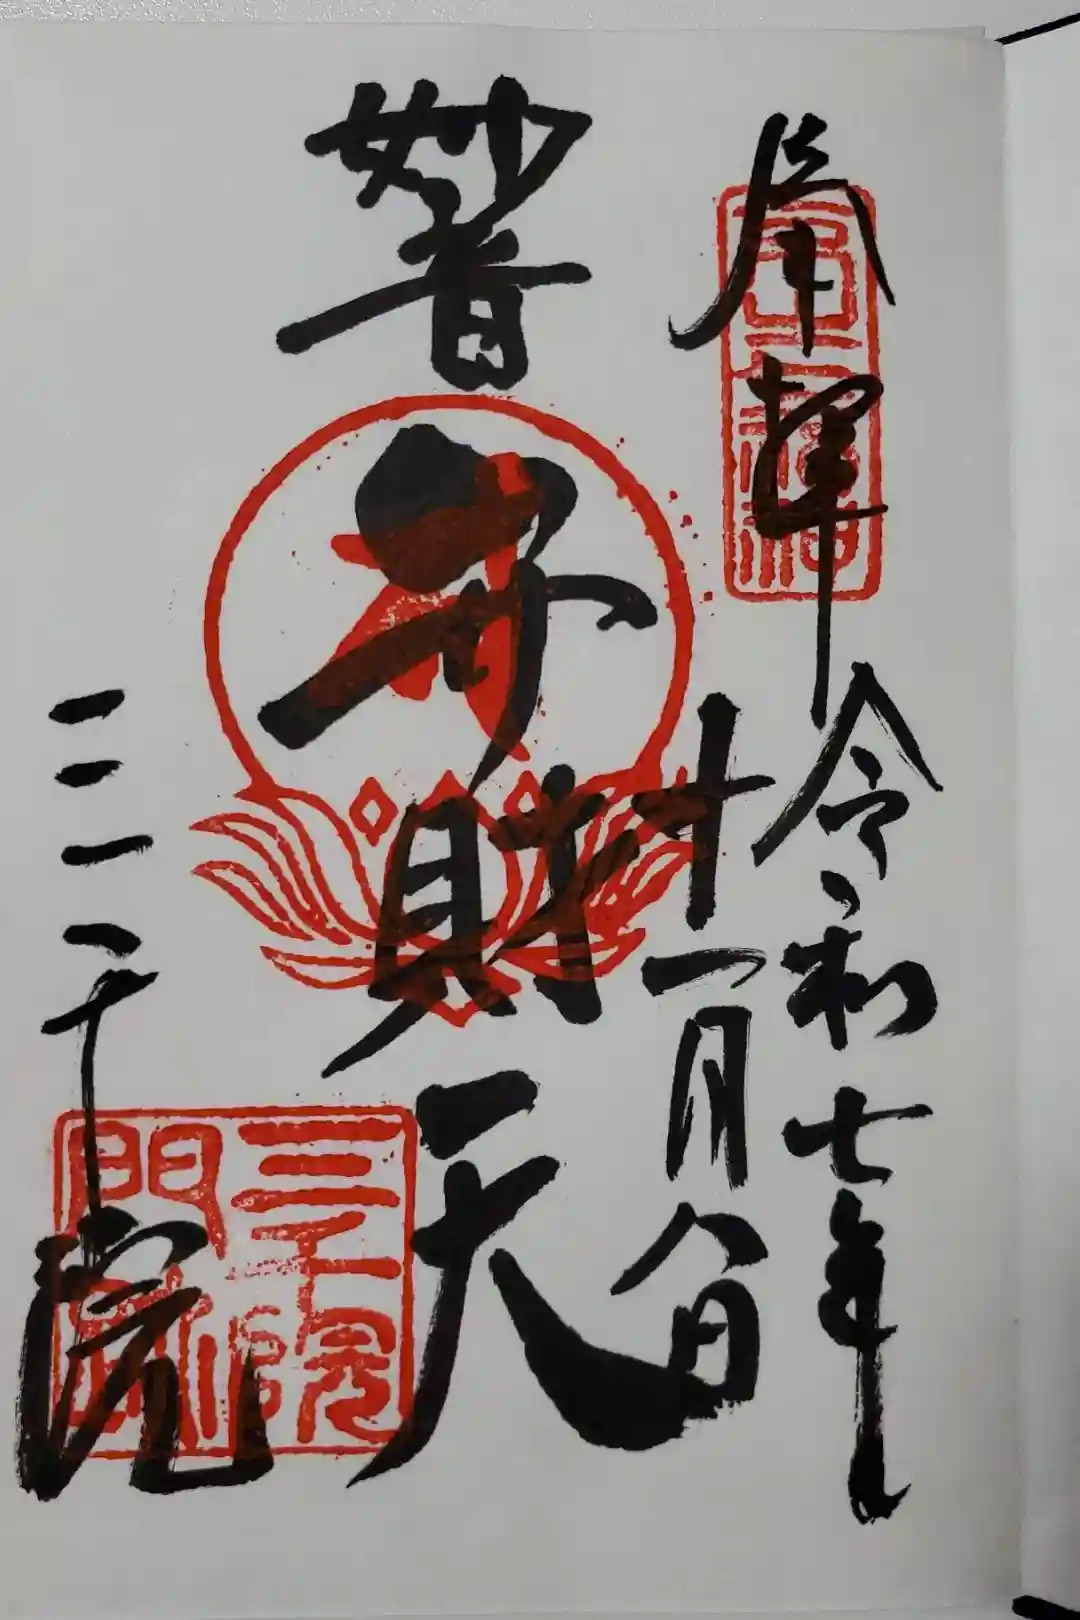 奉拝
令和七年
十一月八日
妙音
弁財天
三千院
三千院
門跡印